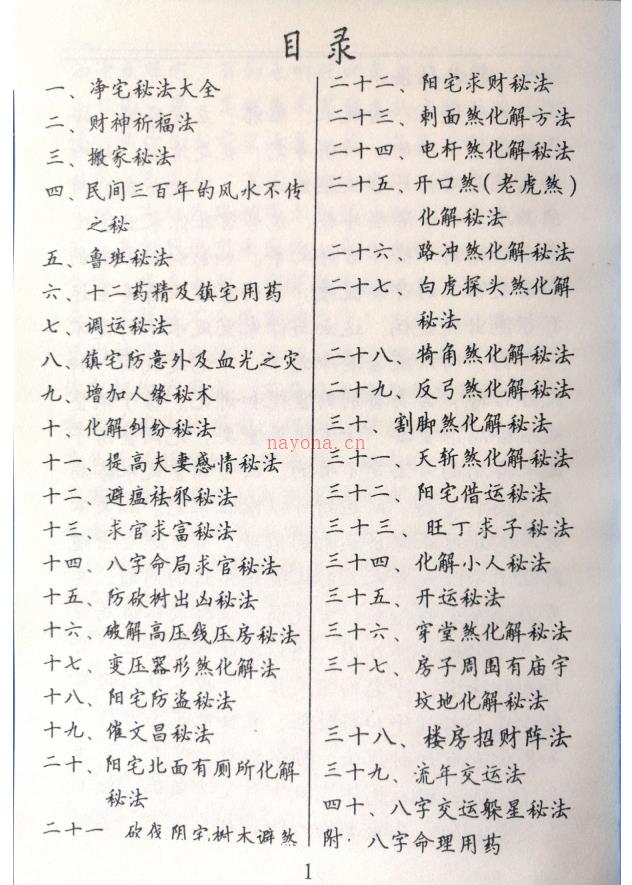 目录
一、净宅秘法大全
二、财神祈福法
三、搬家秘法
四、民间三百年的风水不传
之秘
五、鲁班秘法
六、十二药精及镇宅用药
七、调运秘法
八、镇宅防意外及血光之灾
九、增加人缘秘术
十、化解纠纷秘法
十一、提高夫妻感情秘法
十二、避瘟祛邪秘法
十三、求官求富秘法
十四、八字命局求官秘法
十五、防砍树出凶秘法
十六、破解高压线压房秘法
十七、变压器形煞化解法
十八、阳宅防盗秘法
十九、催文昌秘法
二十、阳宅北面有厕所化解
秘法
二十一 砍伐阴宅树木避煞
二十二、阳宅求财秘法
二十三、刺面煞化解方法
二十四、电杆煞化解秘法
二十五、开口煞(老虎煞)
化解秘法
二十六、路冲煞化解秘法
二十七、白虎探头煞化解
秘法
二十八、犄角煞化解秘法
二十九、反弓煞化解秘法
三十、割脚煞化解秘法
三十一、天斩煞化解秘法
三十二、阳宅借运秘法
三十三、旺丁求子秘法
三十四、化解小人秘法
三十五、开运秘法
三十六、穿堂煞化解秘法
三十七、房子周围有庙宇
坟地化解秘法
三十八、楼房招财阵法
三十九、流年交运法
四十、八字交运躲星秘法
附：八字命理用药
nayona.cn
1